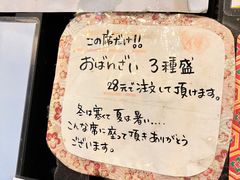 この席だけ!!
おばんざい 3種盛
28元で注文して頂けます。
冬は寒くて夏は暑い....
こんな席に座って頂きありがとう
ございます。